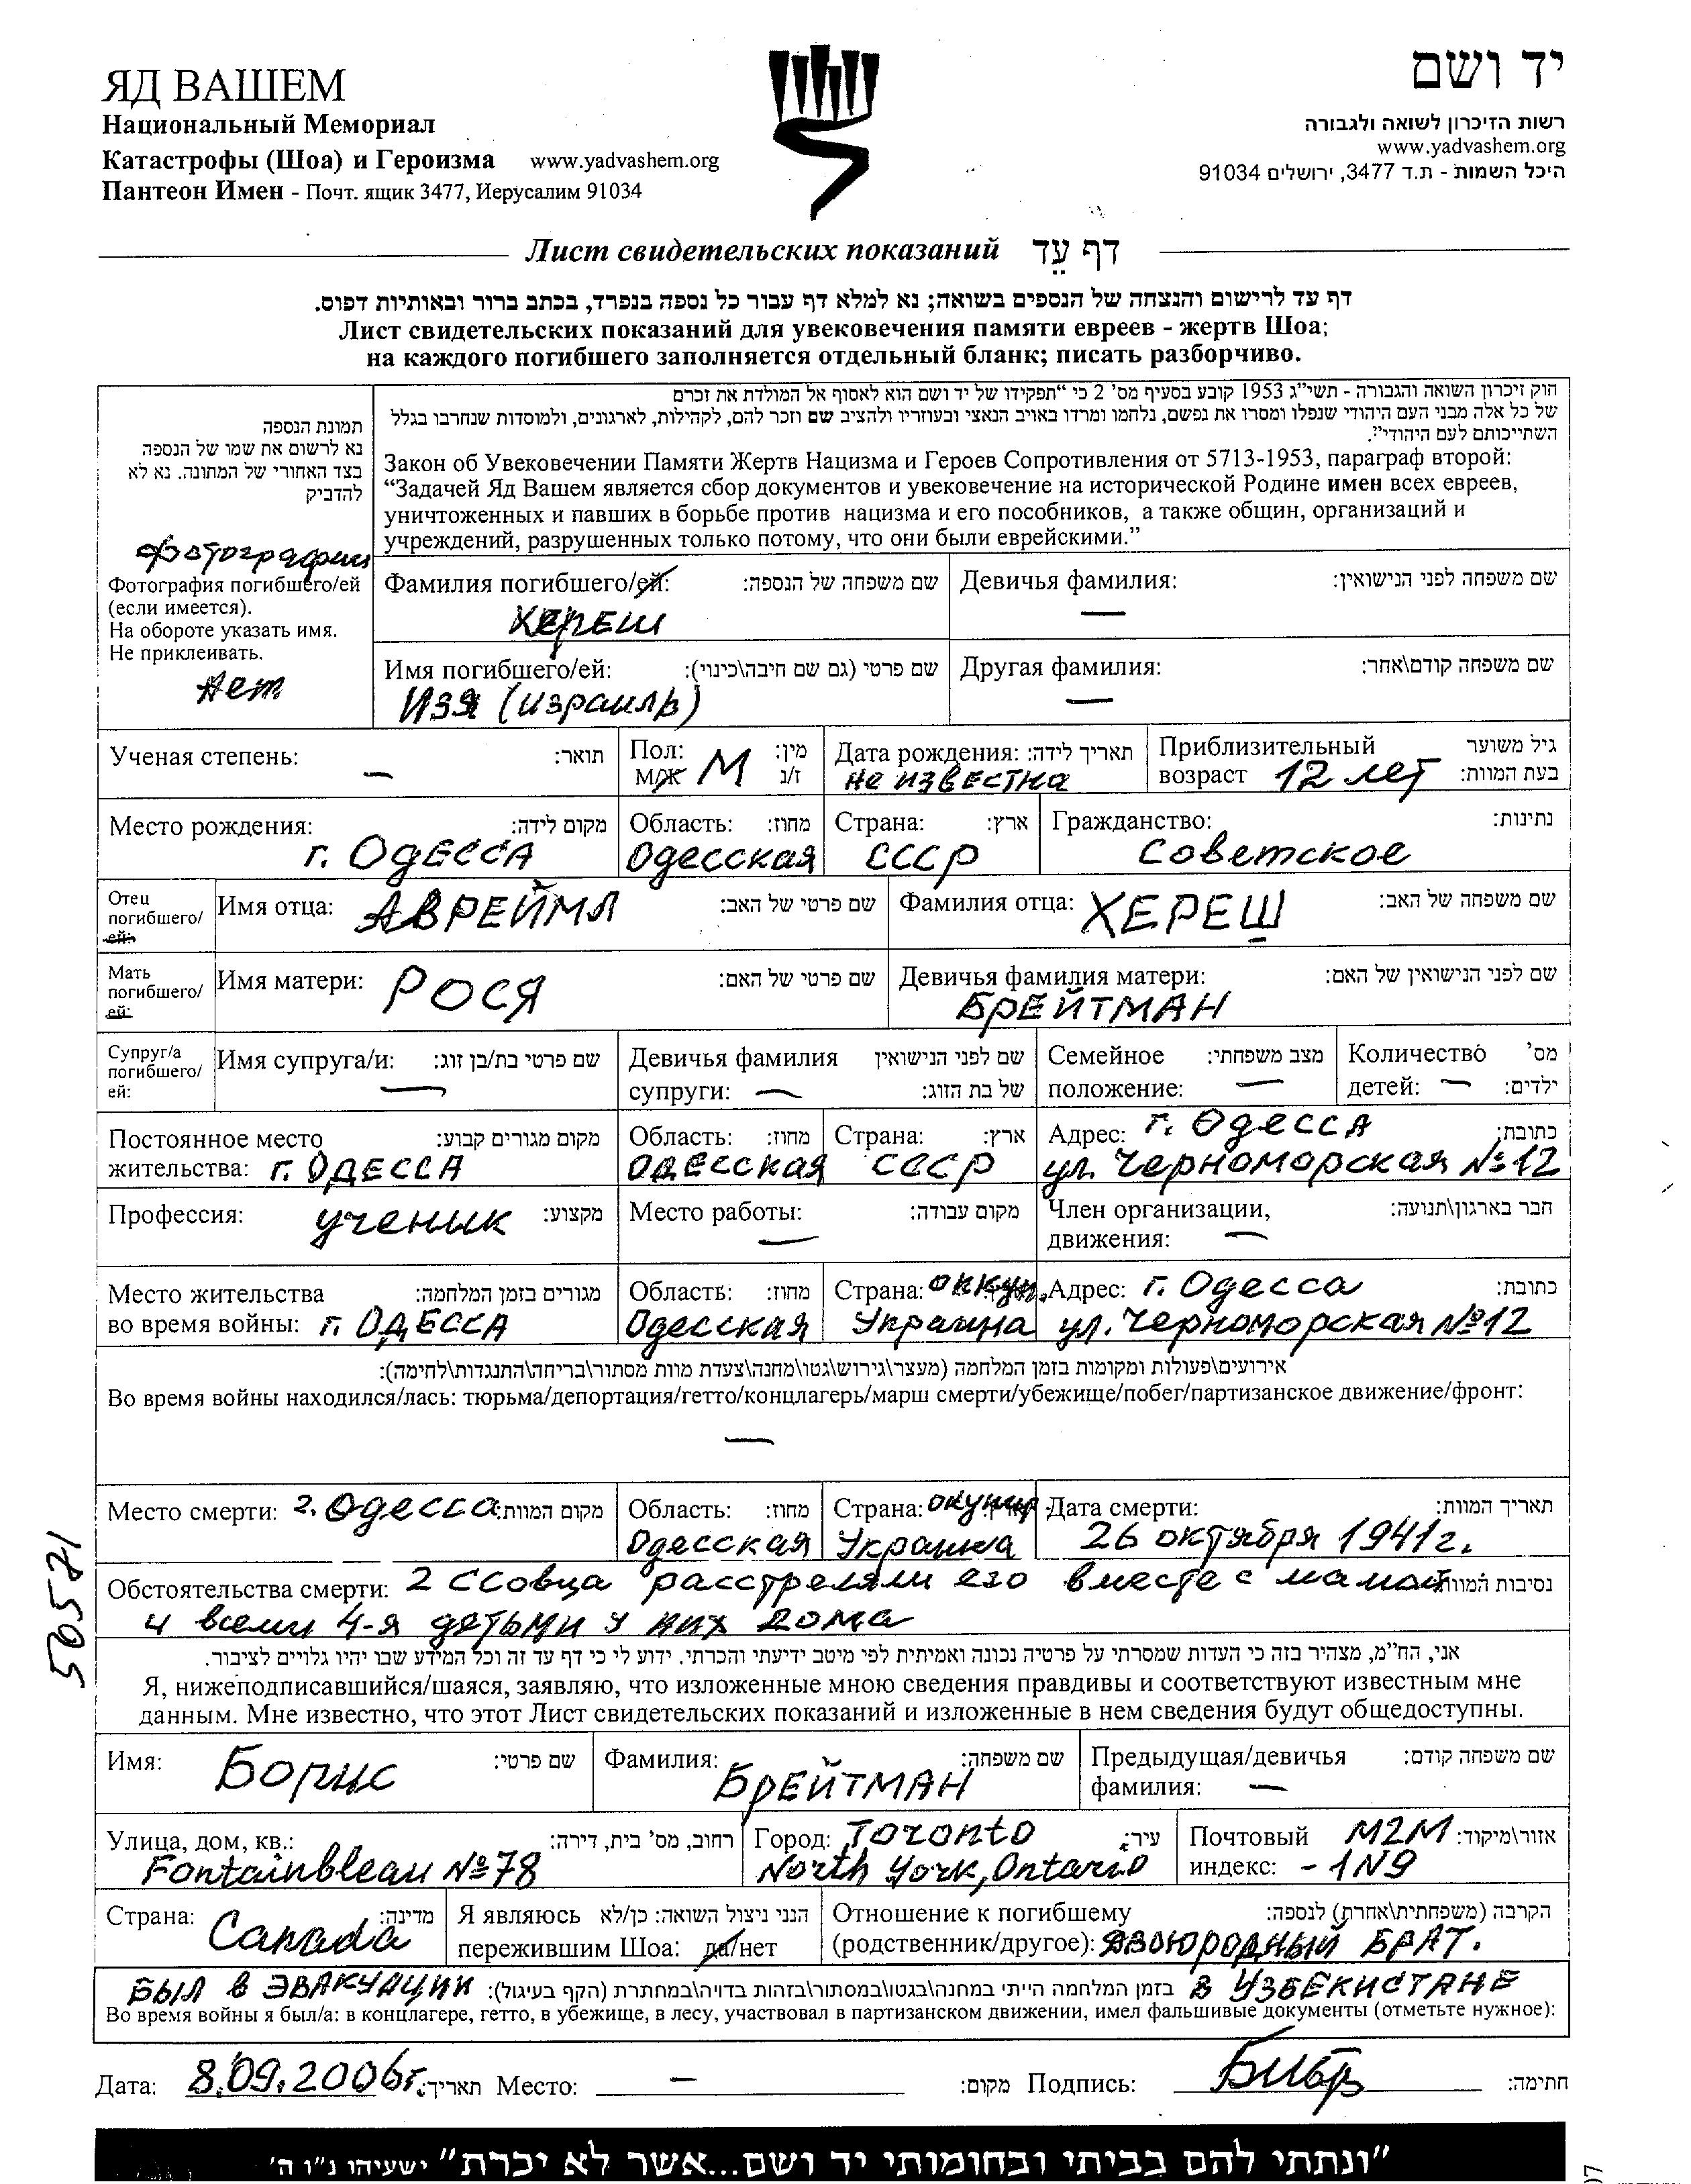 ЯД ВАШЕМ
Национальный Мемориал
Катастрофы (Шоа) и Героизма www.yadvashem.org
Пантеон Имен - Почт. ящик 3477, Иерусалим 91034
יד ושם
רשות הזיכרון לשואה ולגבורה
www.yadvashem.org
היכל השמות - ת.ד 3477, ירושלים 91034
Лист свидетельских показаний דף עֵד
דף עד לרישום והנצחה של הנספים בשואה; נא למלא דף עבור כל נספה בנפרד, בכתב ברור ובאותיות דפוס.
Лист свидетельских показаний для увековечения памяти евреев - жертв Шоа;
на каждого погибшего заполняется отдельный бланк; писать разборчиво.
תמונת הנספה
נא לרשום את שמו של הנספה
בצד האחורי של המתונה. נא לא
להדביק
фотографии
Фотография погибшего/ей
(если имеется).
На обороте указать имя.
Не приклеивать.
нет
חוק זיכרון השואה והגבורה - תשי"ג 1953 קובע בסעיף מס' 2 כי "תפקידו של יד ושם הוא לאסוף אל המולדת את זכרם
של כל אלה מבני העם היהודי שנפלו ומסרו את נפשם, נלחמו ומרדו באויב הנאצי ובעוזריו ולהציב שם וזכר להם, לקהילות, לארגונים, ולמוסדות שנחרבו בגלל
השתייכותם לעם היהודי".
Закон об Увековечении Памяти Жертв Нацизма и Героев Сопротивления от 5713-1953, параграф второй:
“Задачей Яд Вашем является сбор документов и увековечение на исторической Родине имен всех евреев,
уничтоженных и павших в борьбе против нацизма и его пособников, а также общин, организаций и
учреждений, разрушенных только потому, что они были еврейскими.”
Фамилия погибшего/ей: שם משפחה של הנספה: Девичья фамилия: שם משפחה לפני הנישואין:
Хереш —
Имя погибшего/ей: שם פרטי (גם שם חיבה\כינוי): Другая фамилия: שם משפחה קודם\אחר:
Изя (Израиль) —
Ученая степень: — תואר: Пол: м/ж М מין: ז/נ Дата рождения: תאריך לידה: не известна Приблизительный возраст 12 лет גיל משוער בעת המוות:
Место рождения: מקום לידה: Область: מחוז: Страна: ארץ: Гражданство: נתינות:
г. Одесса Одесская СССР Советское
Отец погибшего/ей: Имя отца: АВРЕЙМЛ שם פרטי של האב: Фамилия отца: ХЕРЕШ שם משפחה של האב:
Мать погибшего/ей: Имя матери: РОСЯ שם פרטי של האם: Девичья фамилия матери: שם לפני הנישואין של האם:
БРЕЙТМАН
Супруг/а погибшего/ей: Имя супруга/и: שם פרטי בת/בן זוג: — Девичья фамилия супруги: — שם לפני הנישואין של בת הזוג: Семейное положение: — מצב משפחתי: Количество детей: — מס' ילדים:
Постоянное место מקום מגורים קבוע: Область: מחוז: Страна: ארץ: Адрес: г. Одесса כתובת:
жительства: г. ОДЕССА Одесская СССР ул. Черноморская №12
Профессия: ученик מקצוע: Место работы: — מקום עבודה: Член организации, движения: — חבר בארגון\תנועה:
Место жительства מגורים בזמן המלחמה: Область: מחוז: Страна: оккуп. Адрес: г. Одесса כתובת:
во время войны: г. ОДЕССА Одесская Украина ул. Черноморская №12
אירועים\פעולות ומקומות בזמן המלחמה (מעצר\גירוש\גטו\מחנה\צעדת מוות מסתור\בריחה\התנגדות\לחימה):
Во время войны находился/лась: тюрьма/депортация/гетто/концлагерь/марш смерти/убежище/побег/партизанское движение/фронт:
—
Место смерти: г. Одесса מקום המוות: Область: מחוז: Страна: окупир. Дата смерти: תאריך המוות:
Одесская Украина 26 октября 1941г.
Обстоятельства смерти: 2 ССовца расстреляли его вместе с мамой נסיבות המוות:
и всеми 4-я детьми у них дома
אני, הח"מ, מצהיר בזה כי העדות שמסרתי על פרטיה נכונה ואמיתית לפי מיטב ידיעתי והכרתי. ידוע לי כי דף עד זה וכל המידע שבו יהיו גלויים לציבור.
Я, нижеподписавшийся/шаяся, заявляю, что изложенные мною сведения правдивы и соответствуют известным мне
данным. Мне известно, что этот Лист свидетельских показаний и изложенные в нем сведения будут общедоступны.
Имя: Борис שם פרטי: Фамилия: БРЕЙТМАН שם משפחה: Предыдущая/девичья фамилия: — שם משפחה קודם:
Улица, дом, кв.: רחוב, מס' בית, דירה: Город: Toronto עיר: Почтовый M2M אזור\מיקוד:
Fontainbleau №78 North York, Ontario индекс: -1N9
Страна: Canada מדינה: Я являюсь הנני ניצול השואה: כן/לא Отношение к погибшему הקרבה (משפחתית\אחרת) לנספה:
пережившим Шоа: да/нет (родственник/другое): ДВОЮРОДНЫЙ БРАТ.
БЫЛ В ЭВАКУАЦИИ בזמן המלחמה הייתי במחנה\בגטו\במסתור\בזהות בדויה\במחתרת (הקף בעיגול): В УЗБЕКИСТАНЕ
Во время войны я был/а: в концлагере, гетто, в убежище, в лесу, участвовал в партизанском движении, имел фальшивые документы (отметьте нужное):
Дата: 8.09.2006г. תאריך: Место: — מקום: Подпись: חתימה:
"ונתתי להם בביתי ובחומותי יד ושם...אשר לא יכרת" ישעיהו נ"ו ה'
505871
07